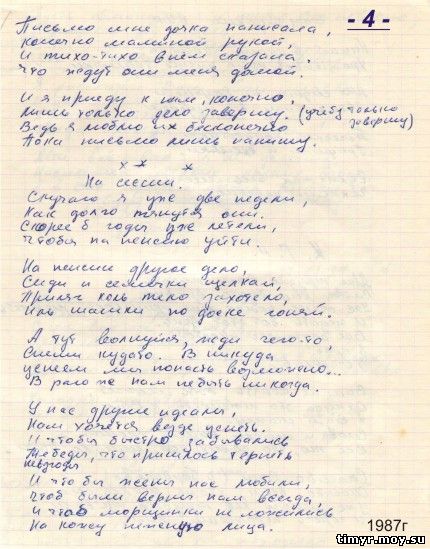 - 4 -
Письмо мне дочка написала,
конечно маминой рукой,
И тихо-тихо в нём сказала,
Что ждут они меня домой.
И я приеду к ним, конечно,
Лишь только дело завершу. (учёбу только завершу)
Ведь я люблю их бесконечно
Пока письмо лишь напишу.
х х х
На сессии.
Скучаю я уже две недели,
Как долго тянутся они.
Скорее б годы уже летели,
Чтобы на пенсию уйти.
На пенсии другое дело,
Сиди и семечки щелкай,
Приляг коль тело захотело,
Иль шашки по доске гоняй.
А тут волнуйся, жди чего-то,
Спеши куда-то. В никуда
успеем мы попасть возможно...
В раю же нам не быть никогда.
У нас другие идеалы,
Нам хочется везде успеть.
И чтобы быстро забывались
Те беды, что пришлось терпеть
невзгоды
И чтобы жёны нас любили,
Чтоб были верны нам всегда,
И чтоб морщинки не ложились
На кожу нежную лица.
1987г
timyr.moy.su